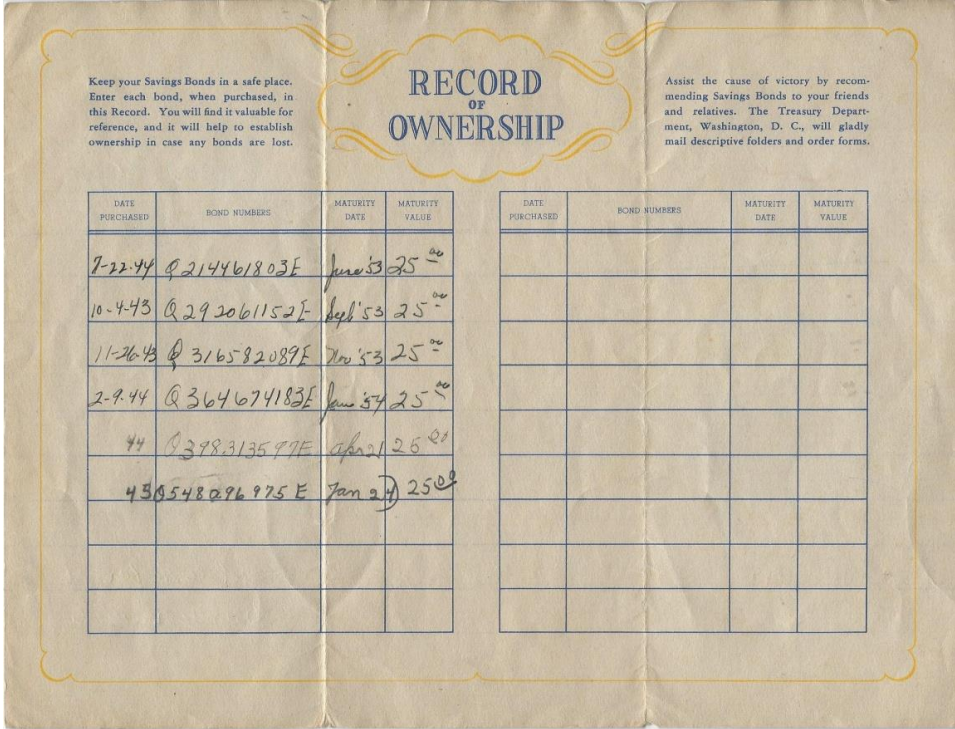 RECORD
OF
OWNERSHIP
Keep your Savings Bonds in a safe place.
Enter each bond, when purchased, in
this Record. You will find it valuable for
reference, and it will help to establish
ownership in case any bonds are lost.
Assist the cause of victory by recom-
mending Savings Bonds to your friends
and relatives. The Treasury Depart-
ment, Washington, D. C., will gladly
mail descriptive folders and order forms.
DATE PURCHASED BOND NUMBERS MATURITY DATE MATURITY VALUE
7-22-44 Q214461803E June '53 25 00
10-4-43 Q292061152E Sept '53 25 00
11-26-43 Q316582089E Nov '53 25 00
2-9-44 Q364674183E Jan '54 25 00
44 Q398313597E Apr 21 25 00
45 Q548296975E Jan 24 25 00
DATE PURCHASED BOND NUMBERS MATURITY DATE MATURITY VALUE